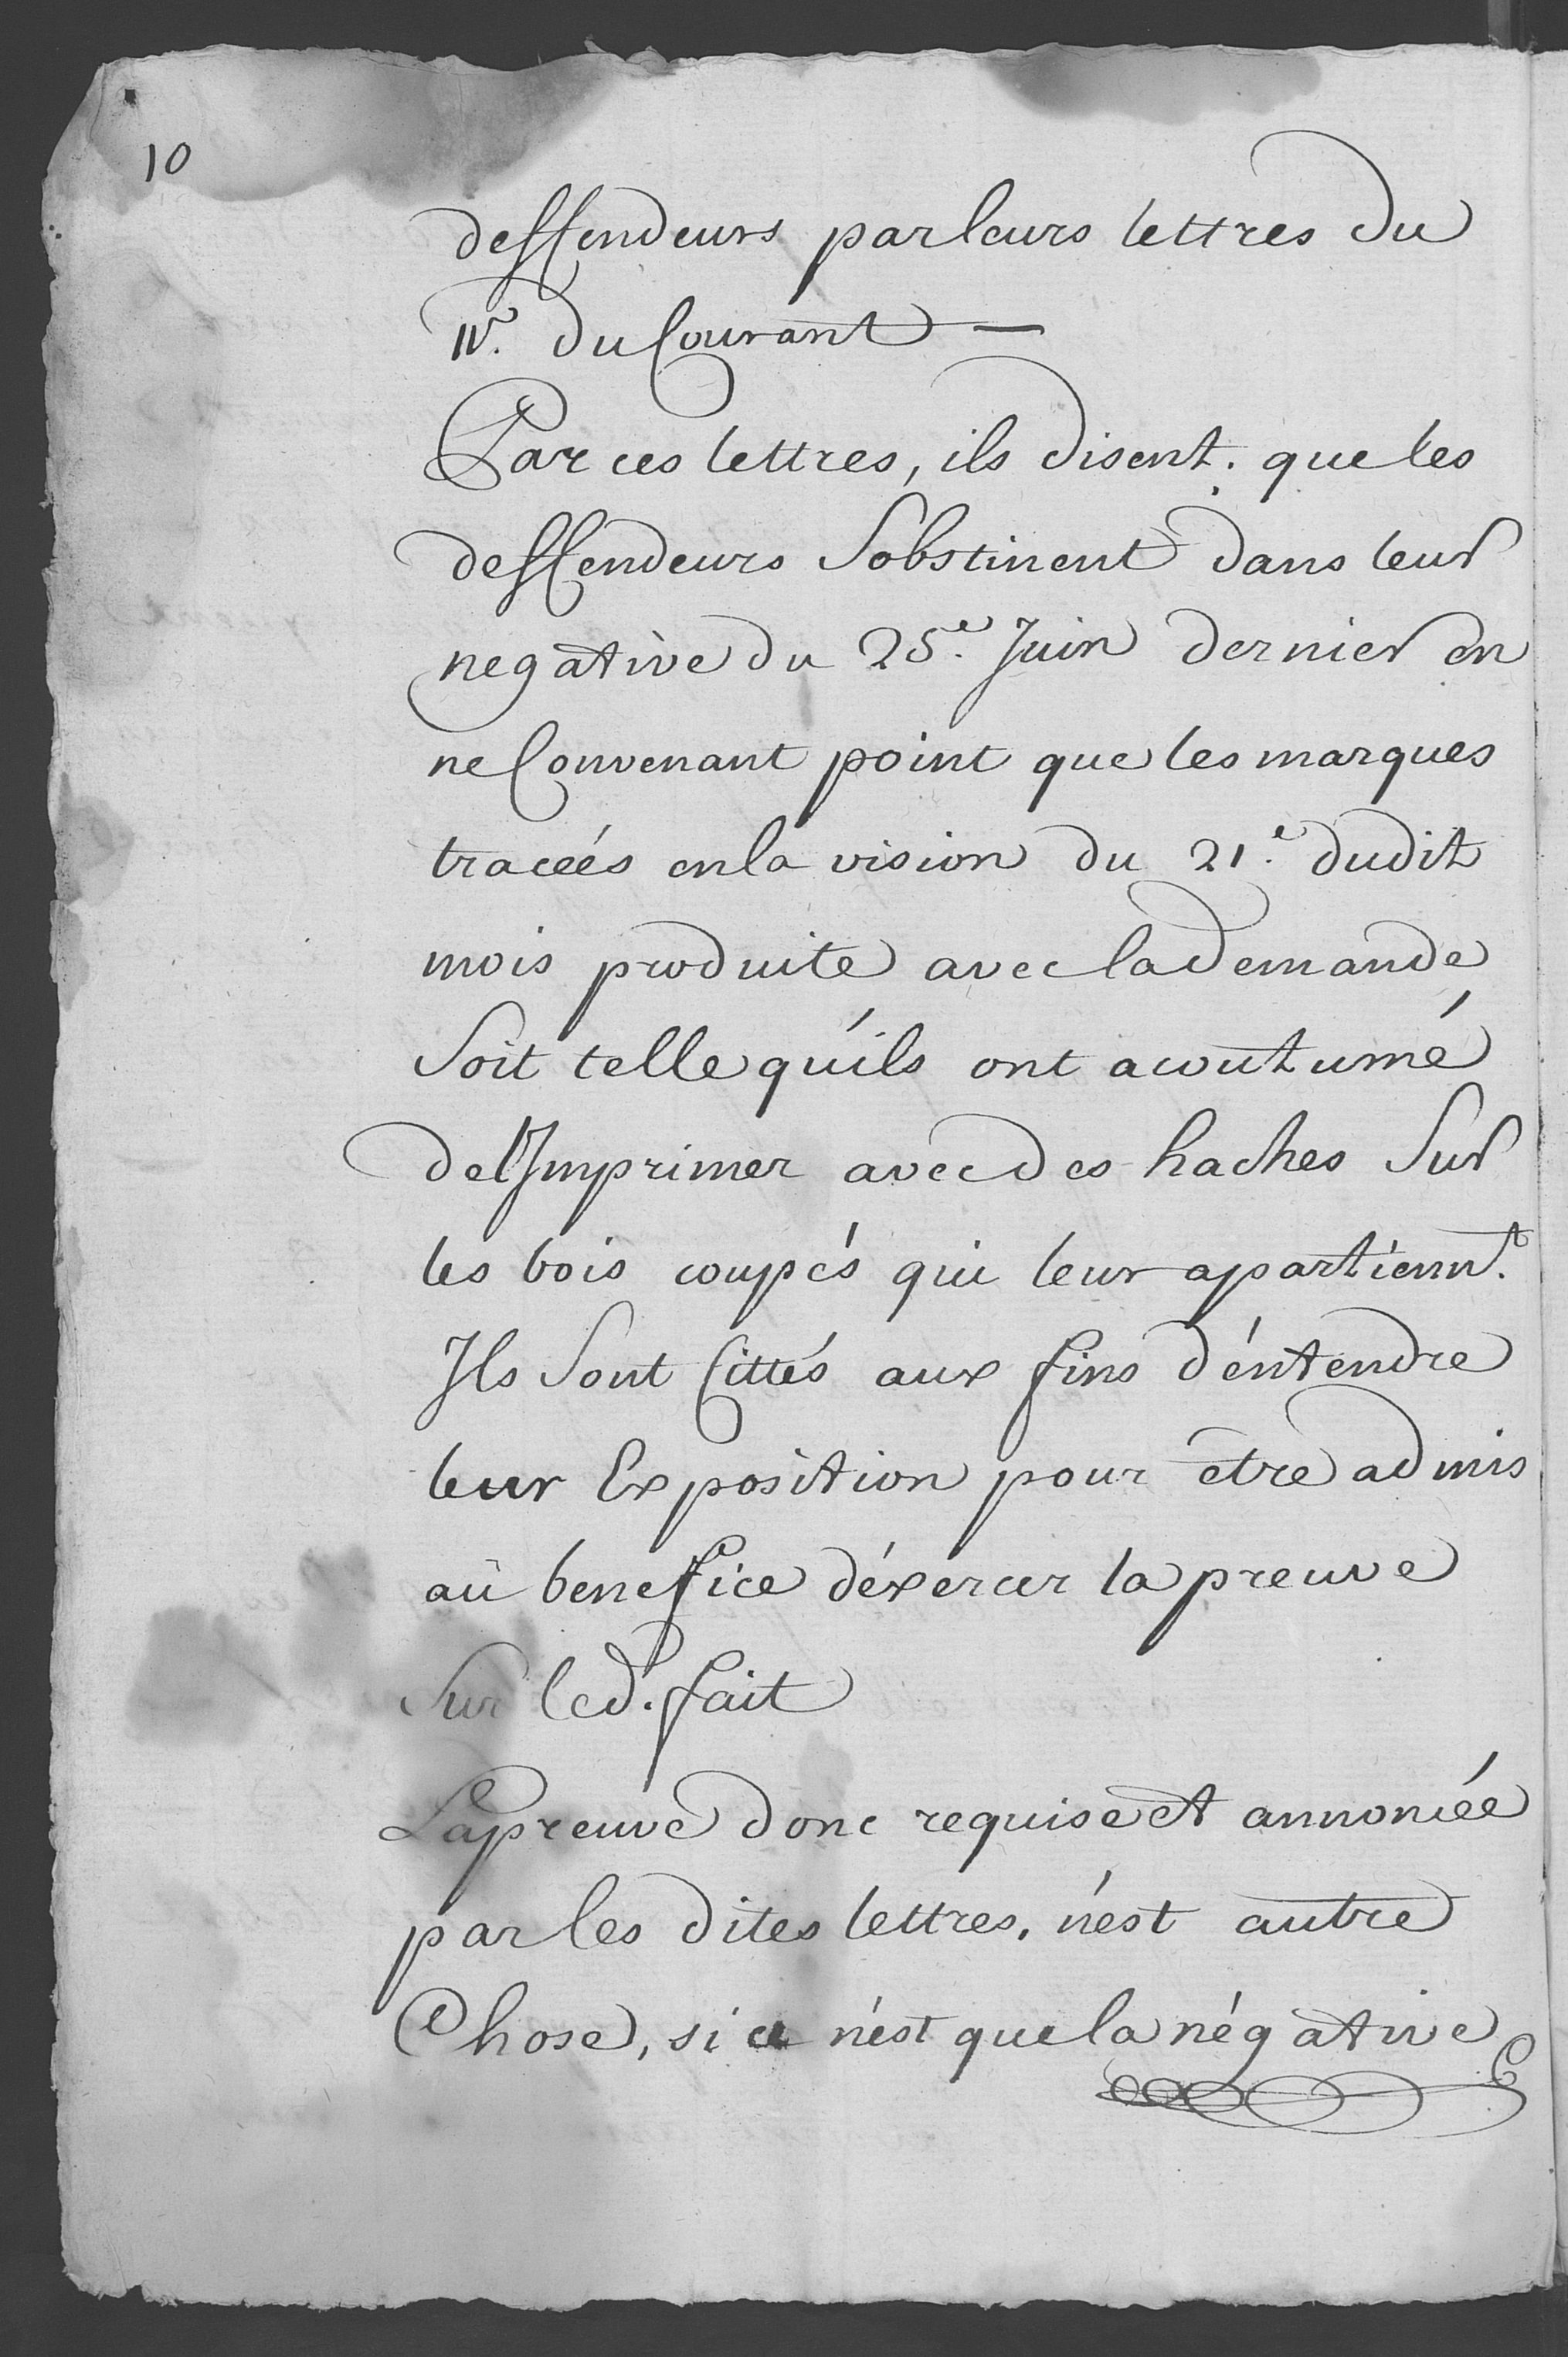 10
deffendeurs par leurs lettres du
11e. du Courant —
Par ces lettres, ils disent. que les
deffendeurs Sobstinent dans leur
negative du 25e. Juin dernier en
ne Convenant point que les marques
tracéés en la vision du 21e. dudit
mois produite avec la demande
Soit telle qu'ils ont acoutumé
de l'Imprimer avec des haches Sur
les bois coupés qui leur apartienn.t
Ils Sont Cittés aux fins d'éntendre
leur Exposition pour etre admis
au benefice d'éxercer la preuve
Sur led. fait
La preuve donc requise et annoncée
par les dites lettres, n'est autre
Chose, si ce n'ést que la négative